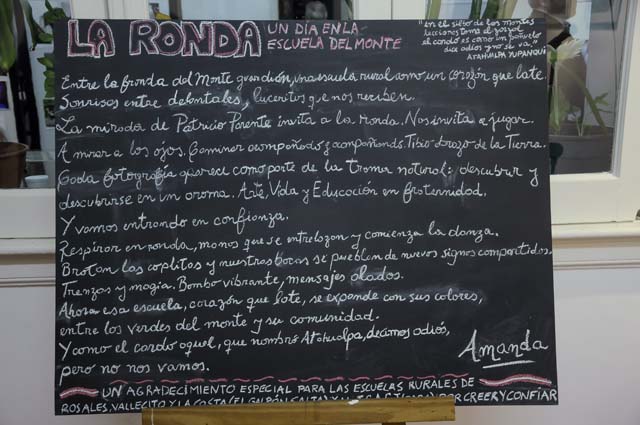 LA RONDA
UN DÍA EN LA
ESCUELA DEL MONTE
"en el silbo de los montes
lecciones toma el zorzal
el cardo es como un pañuelo
dice adiós y no se va."
ATAHUALPA YUPANQUI
Entre la fronda del Monte guardión, una escuela rural como un corazón que late.
Sonrisas entre delantales, lucecitas que nos reciben.
La mirada de Patricio Parente invita a la ronda. Nos invita a jugar.
A mirar a los ojos. Caminar compañando y acompañando. Tibio abrazo de la Tierra.
Cada fotografía aparece como parte de la trama natural: descubrir y
descubrirse en un aroma. Arte, Vida y Educación en fraternidad.
Y vamos entrando en confianza.
Respirar en ronda, manos que se entrelazan y comienza la danza.
Brotan las coplitas y nuestras bocas se pueblan de nuevos signos compartidos.
Trenzas y magia. Bombo vibrante, mensajes alados.
Ahora esa escuela, corazón que late, se expande con sus colores,
entre los verdes del monte y su comunidad.
Y como el cardo aquel, que nombró Atahualpa, decimos adiós,
pero no nos vamos.
Amanda
UN AGRADECIMIENTO ESPECIAL PARA LAS ESCUELAS RURALES DE
ROSALES, VALLECITO Y LA COSTA (EL GALPÓN, SALTA) Y POR CREER Y CONFIAR